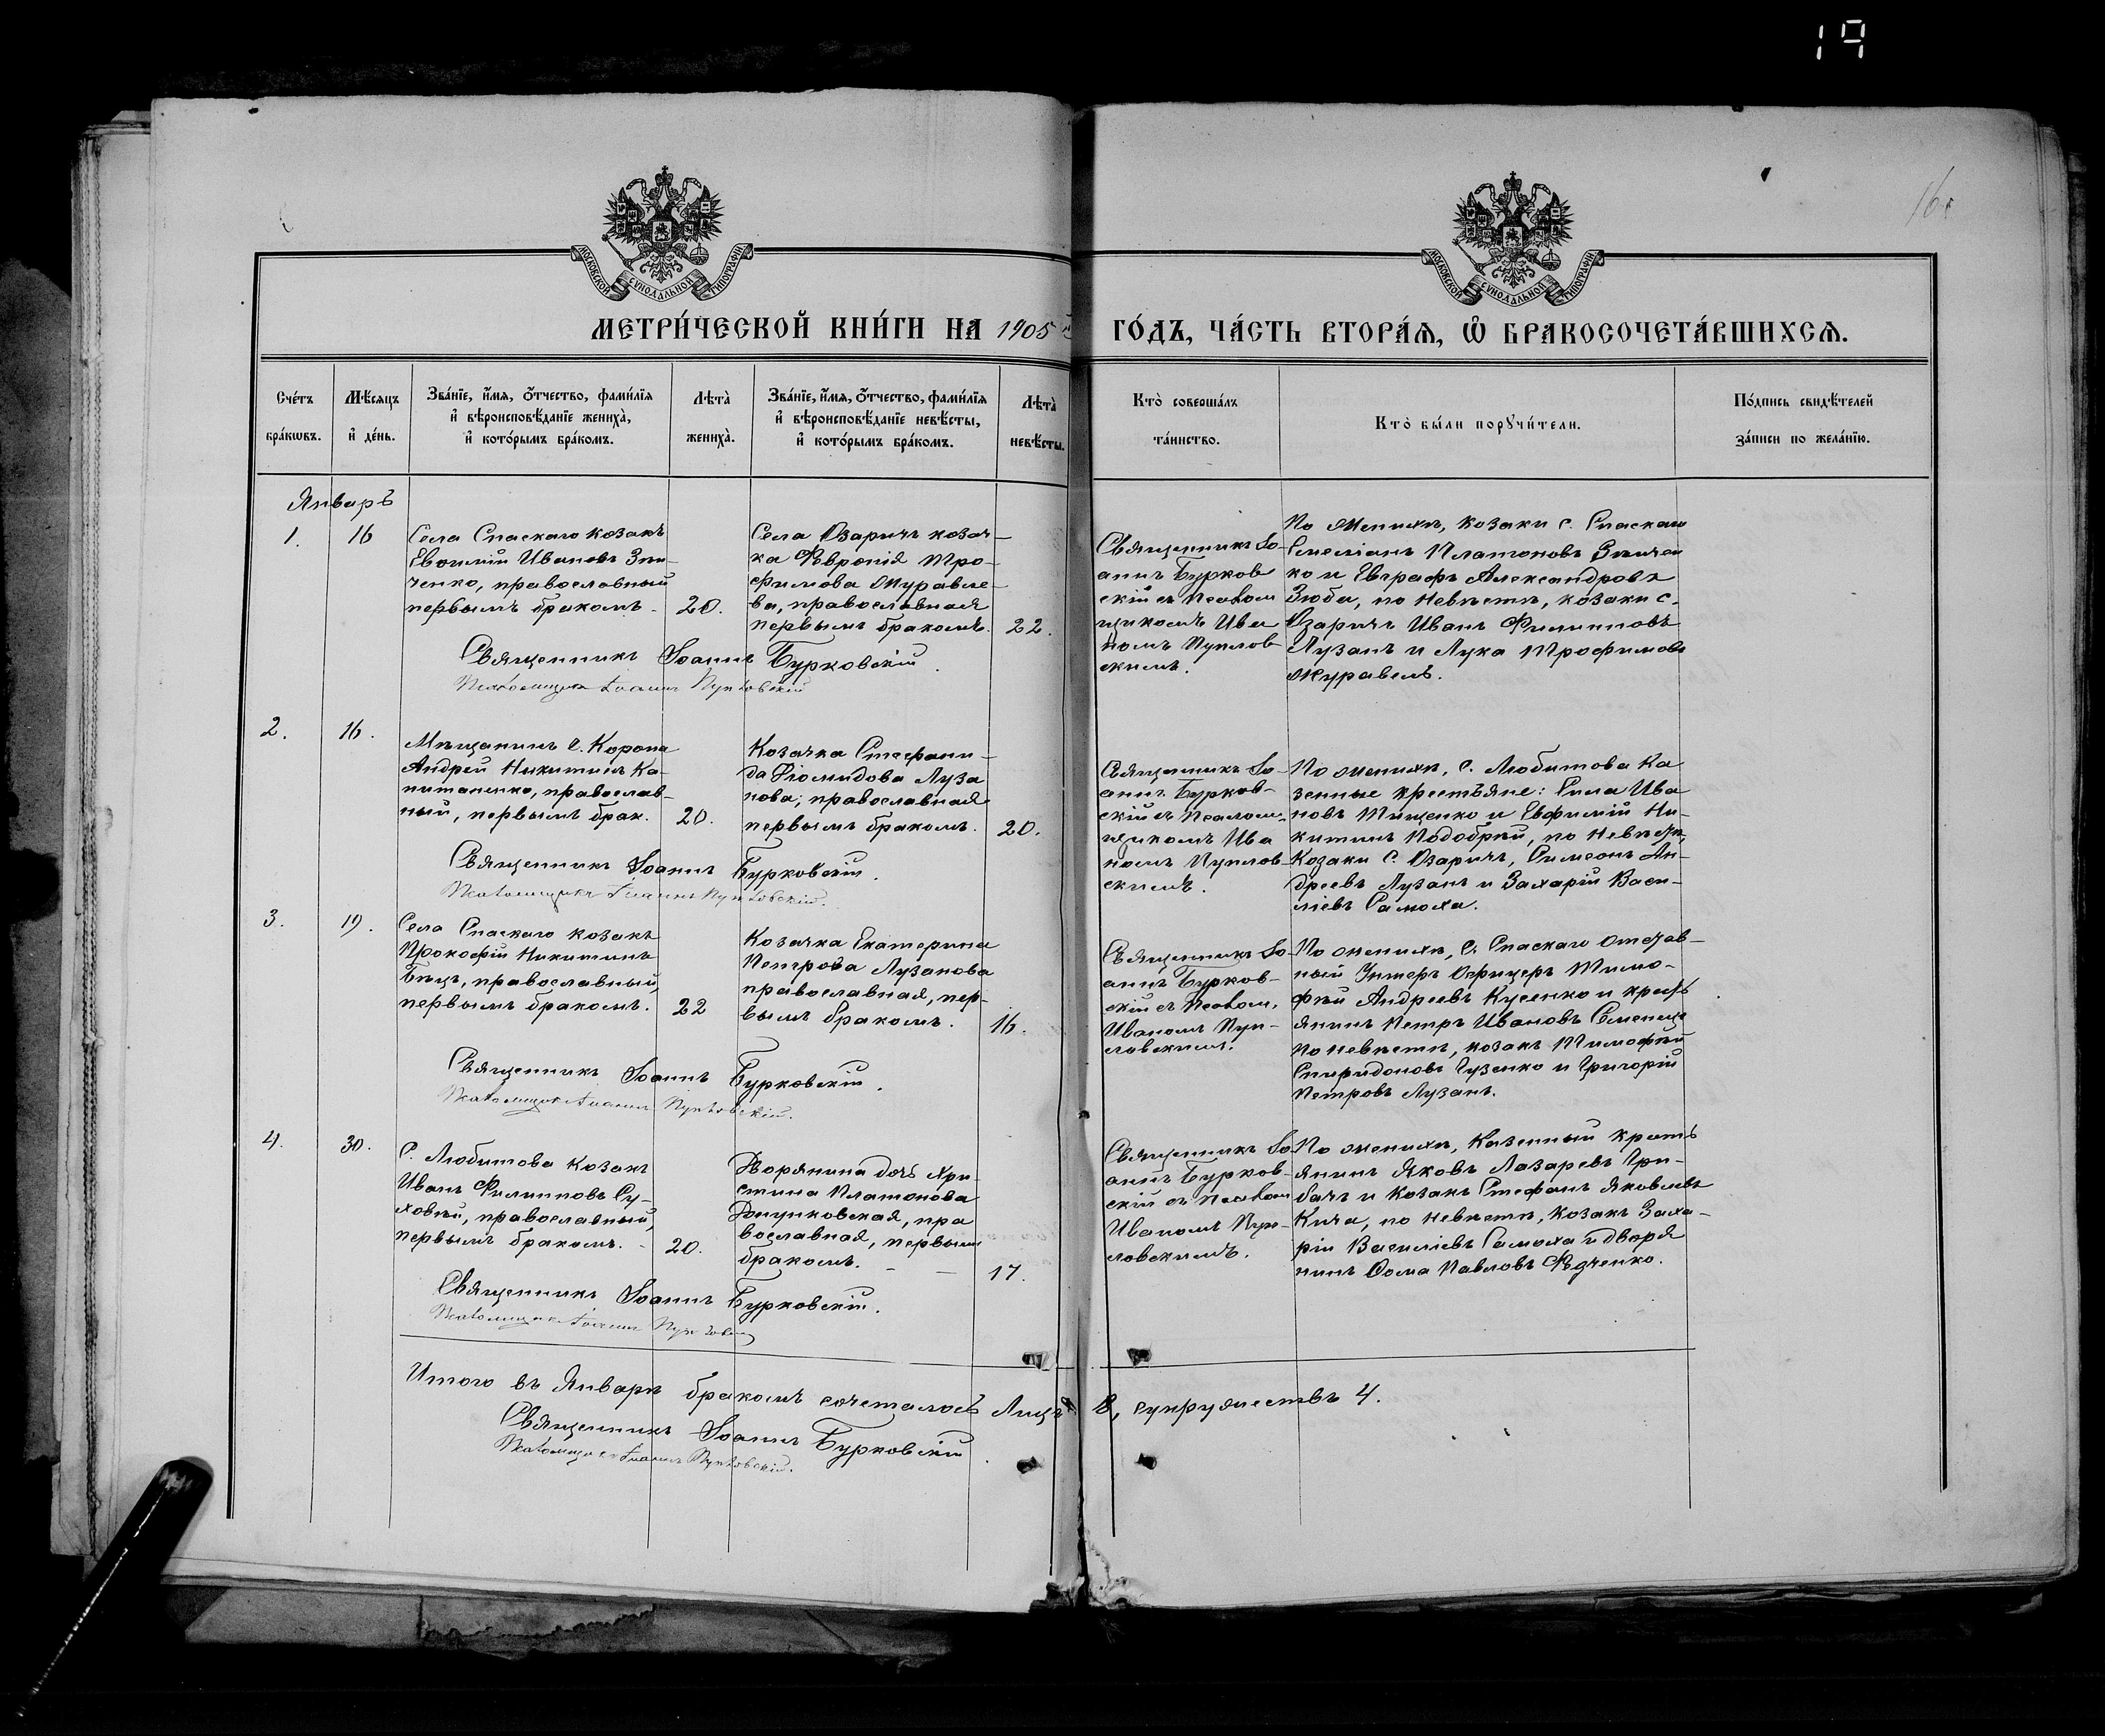 19
16
МОСКОВСКОЙ СѴНОДАЛЬНОЙ ТИПОГРАФІИ
МОСКОВСКОЙ СѴНОДАЛЬНОЙ ТИПОГРАФІИ
МЕТРИ́ЧЕСКОЙ КНИ́ГИ НА 1905 ГО́ДЪ, ЧА́СТЬ ВТОРА́Я, Ѽ БРАКОСОЧЕТА́ВШИХСЯ.
Сче́тъ бра́кωвъ.
Мѣ́сяцъ и҆ де́нь.
Зва́нїе, и҆́мя, ѻ҆́тчество, фами́лїя
и҆ вѣроисповѣ́данїе жениха̀,
и҆ кото́рымъ бра́комъ.
Лѣта̀ жениха̀.
Зва́нїе, и҆́мя, ѻ҆́тчество, фами́лїя
и҆ вѣроисповѣ́данїе невѣ́сты,
и҆ кото́рымъ бра́комъ.
Лѣта̀ невѣ́сты.
Кто̀ соверша́лъ
та́инство.
Кто̀ бы́ли порꙋчи́тели.
По́дпись свидѣ́телей
за́писи по жела́нїю.
Январь
1.
16
Села Спаскаго козакъ
Евфимій Ивановъ Зин-
ченко, православный
первымъ бракомъ.
20.
Села Озаричъ козач-
ка Февронія Тро-
фимова Журавле-
ва, православная
первымъ бракомъ.
22.
Священникъ Іо-
аннъ Бурков
скій съ Псалом
щикомъ Ива
номъ Пуплов
скимъ.
По женихѣ, козаки с. Спаскаго
Емеліанъ Платоновъ
ко и Евграфъ Александровъ
Зюба, по невѣстѣ, козаки с.
Озаричъ Иванъ Филипповъ
Лузанъ и Лука Трофимовъ
Журавель.
Священникъ Іоаннъ Бурковскій.
Псаломщикъ Іоаннъ Пупловскій
2.
16.
Мѣщанинъ с. Коропа
Андрей Никитинъ Ка-
питаненко, православ-
ный, первымъ брак.
20.
Козачка Стефани-
да Діомидова Луза
нова, православная
первымъ бракомъ.
20.
Священникъ Іо-
аннъ Бурков-
скій съ Псалом-
щикомъ Ива
номъ Пуплов-
скимъ.
По женихѣ, с. Любитова Ка
зенные крестьяне: Сила Ива
новъ Тищенко и Евфимій Ни-
китинъ Подобрій, по невѣстѣ,
Козаки с. Озаричъ, Симеонъ Ан-
дреевъ Лузанъ и Захарій Васи-
ліевъ Самоха.
Священникъ Іоаннъ Бурковскій.
Псаломщикъ Іоаннъ Пупловскій.
3.
19.
Села Спаскаго козакъ
Прокофій Никитинъ
Бицъ, православный,
первымъ бракомъ.
22
Козачка Екатерина
Петрова Лузанова
православная, пер-
вымъ бракомъ.
16.
Священникъ Іо-
аннъ Бурков-
скій съ Псалом.
Иваномъ Пуп-
ловскимъ.
По женихѣ, с. Спаскаго отстав-
ный Унтеръ Офицеръ Тимо-
фѣй Андреевъ Кусенко и крест
янинъ Петръ Ивановъ
По невѣстѣ, козакъ Тимофѣй
Спиридоновъ Гузенко и Григорій
Петровъ Лузанъ.
Священникъ Іоаннъ Бурковскій.
Псаломщикъ Іоаннъ Пупловскій.
4.
30.
С. Любитова козакъ
Иванъ Филипповъ Су-
ховѣй, православный,
первымъ бракомъ.
20.
Дворянина дочь Хри-
стина Платонова
православная, первым
бракомъ.
17.
Священникъ Іо
аннъ Бурков-
скій съ Псалом
Иваномъ Пуп-
ловскимъ.
По женихѣ, Казенный крестъ
янинъ Яковъ Лазаревъ Гри-
бачъ и козакъ Стефанъ Яковлевъ
Кича, по невѣстѣ, козакъ Заха-
рій Василіевъ Самоха и дворя
нинъ Ѳома Павловъ Федченко.
Священникъ Іоаннъ Бурковскій.
Псаломщикъ Іоаннъ
Итого въ Январѣ бракомъ сочеталось Лицъ 8, супружествъ 4.
Священникъ Іоаннъ Бурковскій.
Псаломщикъ Іоаннъ Пупловскій.